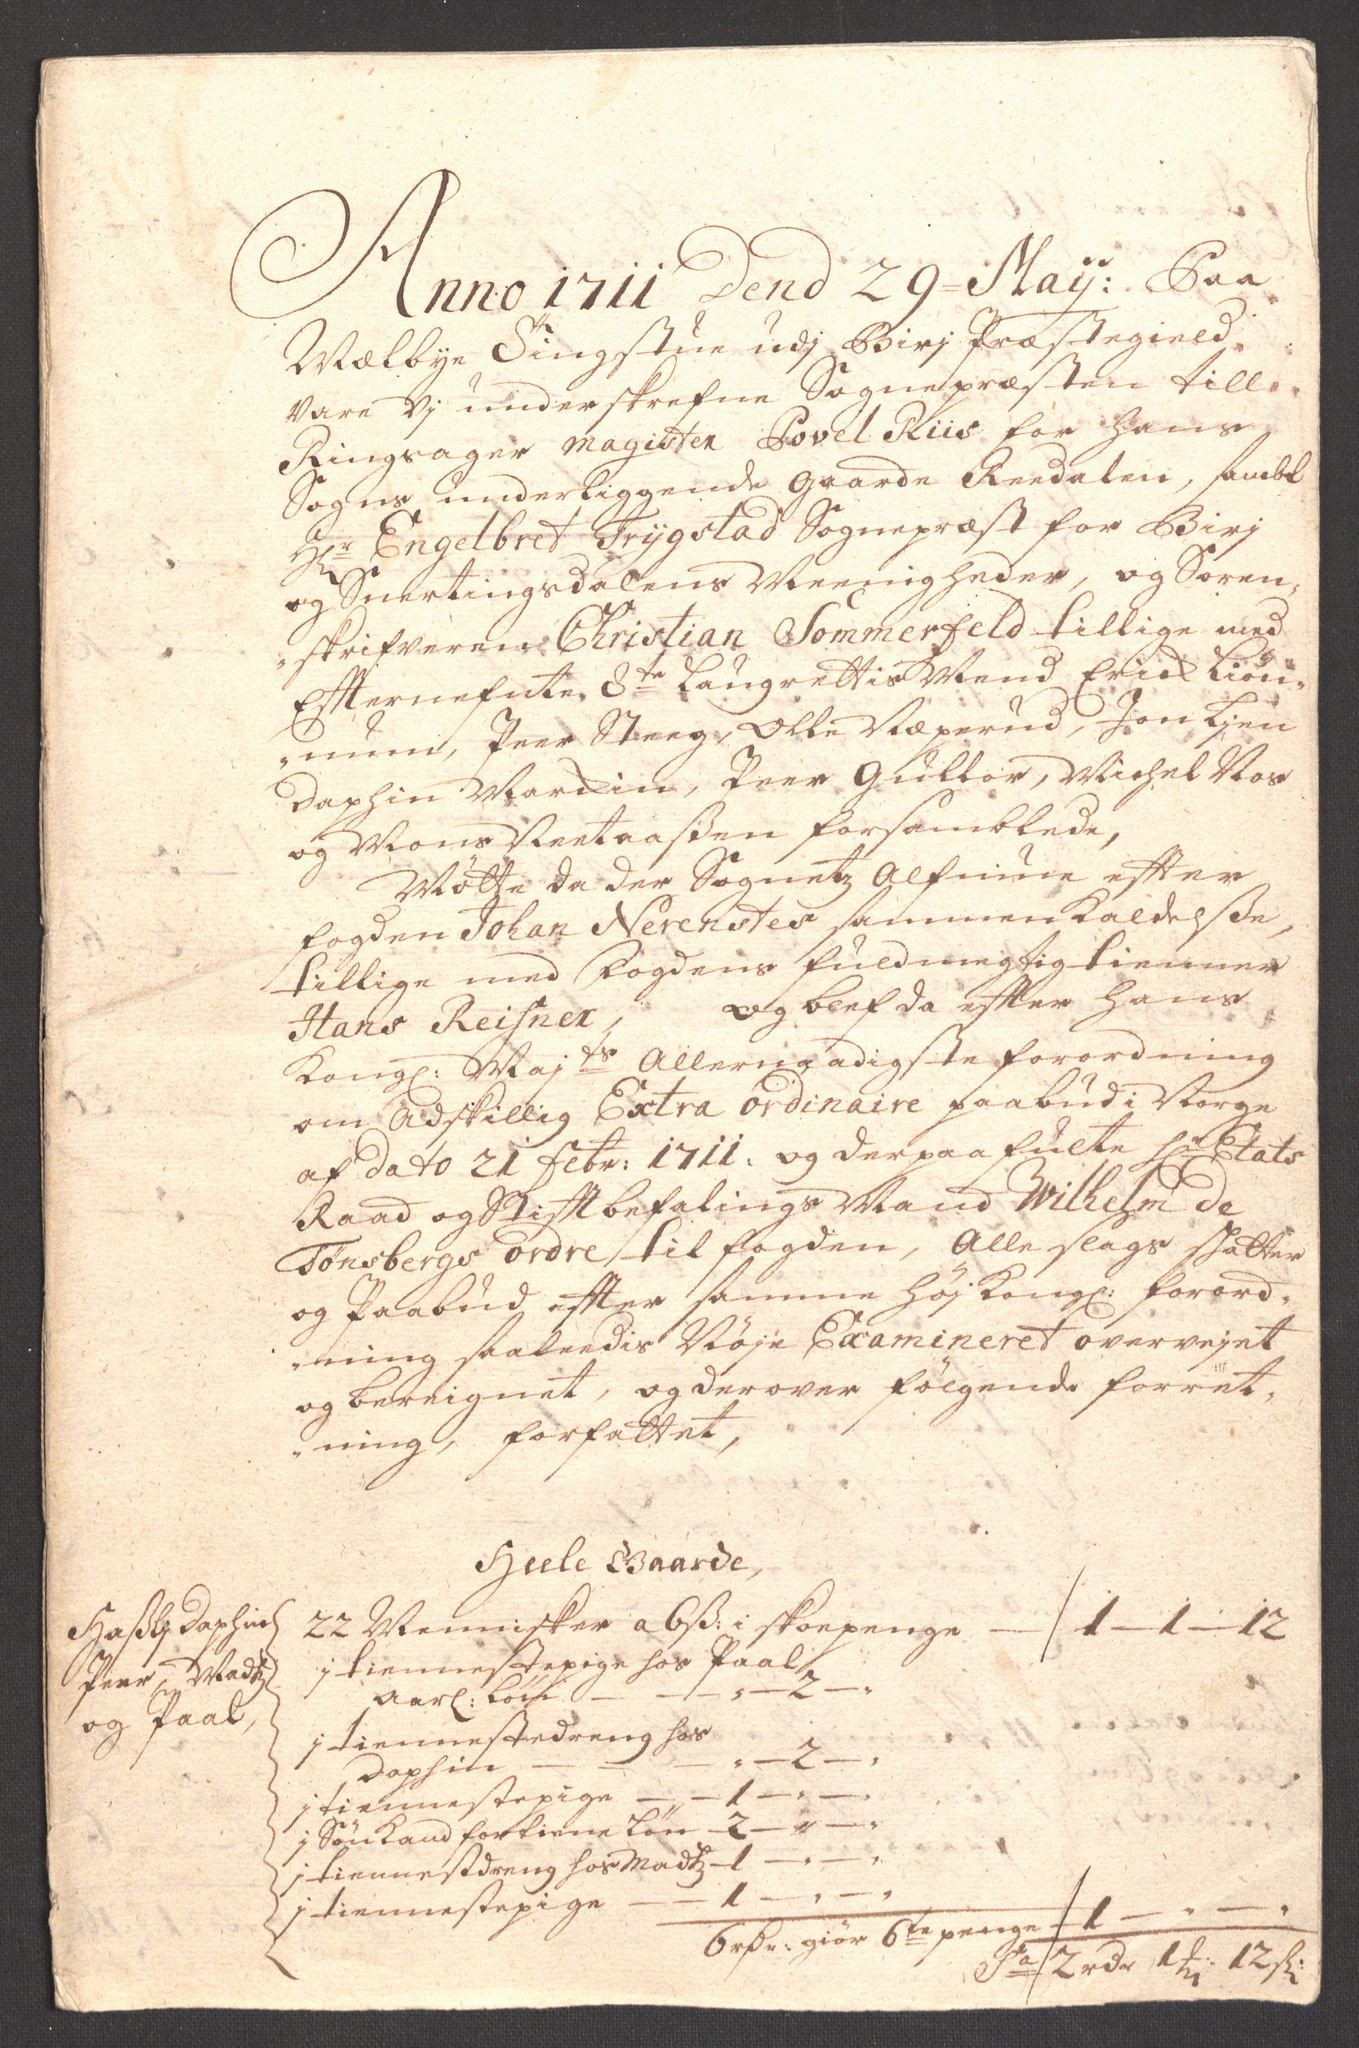 Anno 1711 Dend 29 = Maÿ: Paa
Mælbye Tingstue udj Birj Præstegield
vare Vj underskrefne Sognepræsten till
Ringsager magister Povel Riis for hans
Sogns underliggende gaarde Reedalen, sambt
Hr Engelbret Trÿgstad Sognepræst for Birj
og Snertingsdalens Meenigheder, og Soren-
-skrifveren Christian Sommerfeld tillige med
Effternefnte 8te Laugrettis Mend Erick Liøn-
-num, Peer Steeg, Olle Næperud, Jon Lien
Daphin Marcxin, Peer Gullor, Michel Moe
og Mons Neetaaßen forsamblede,
Møtte da der Sognetz Alfmue effter
fogden Johan Nerenstes sammenkaldelße,
tillige med Fogdens fuldmegtig tienner
Hans Reisner, og blef da effter Hans
Kongl: Majts Allernaadigste forordning
om Adskillig Extra ordinaire paabud i Norge
af dato 21 febr: 1711. og derpaa fulte hr Etats
Raad og Stifftbefalings Mand Wilhelm de
Tønsbergs ordre til fogden, Alle slags skatter
og Paabud effter samme høj Kongl: forord-
-ning saaleedis Nøje Examineret overvejet
og bereignet, og derover følgende forret-
-ning, forfattet,
Heele Gaarde,
Haßlj Daphin
Peer, Madtz
og Paal,
22 Mennisker a 6ß: i skoepenge — 1 — 1 — 12
j tiennestepige hos Paal
aarl: Løn — — „ — 2 — „
j tiennestedreng hos
Daphin — — „ — 2 — „
j tiennestepige — — 1 — „ — „
j Søn Kand fortiene Løn 2 — „ — „
j tiennestdreng hos Madtz — 1 — „ — „
j tiennestepige — — 1 — „ — „
6 rdr: giør 6te penge — 1 — „ — „
Sa 2 rdr 1 12 sk: